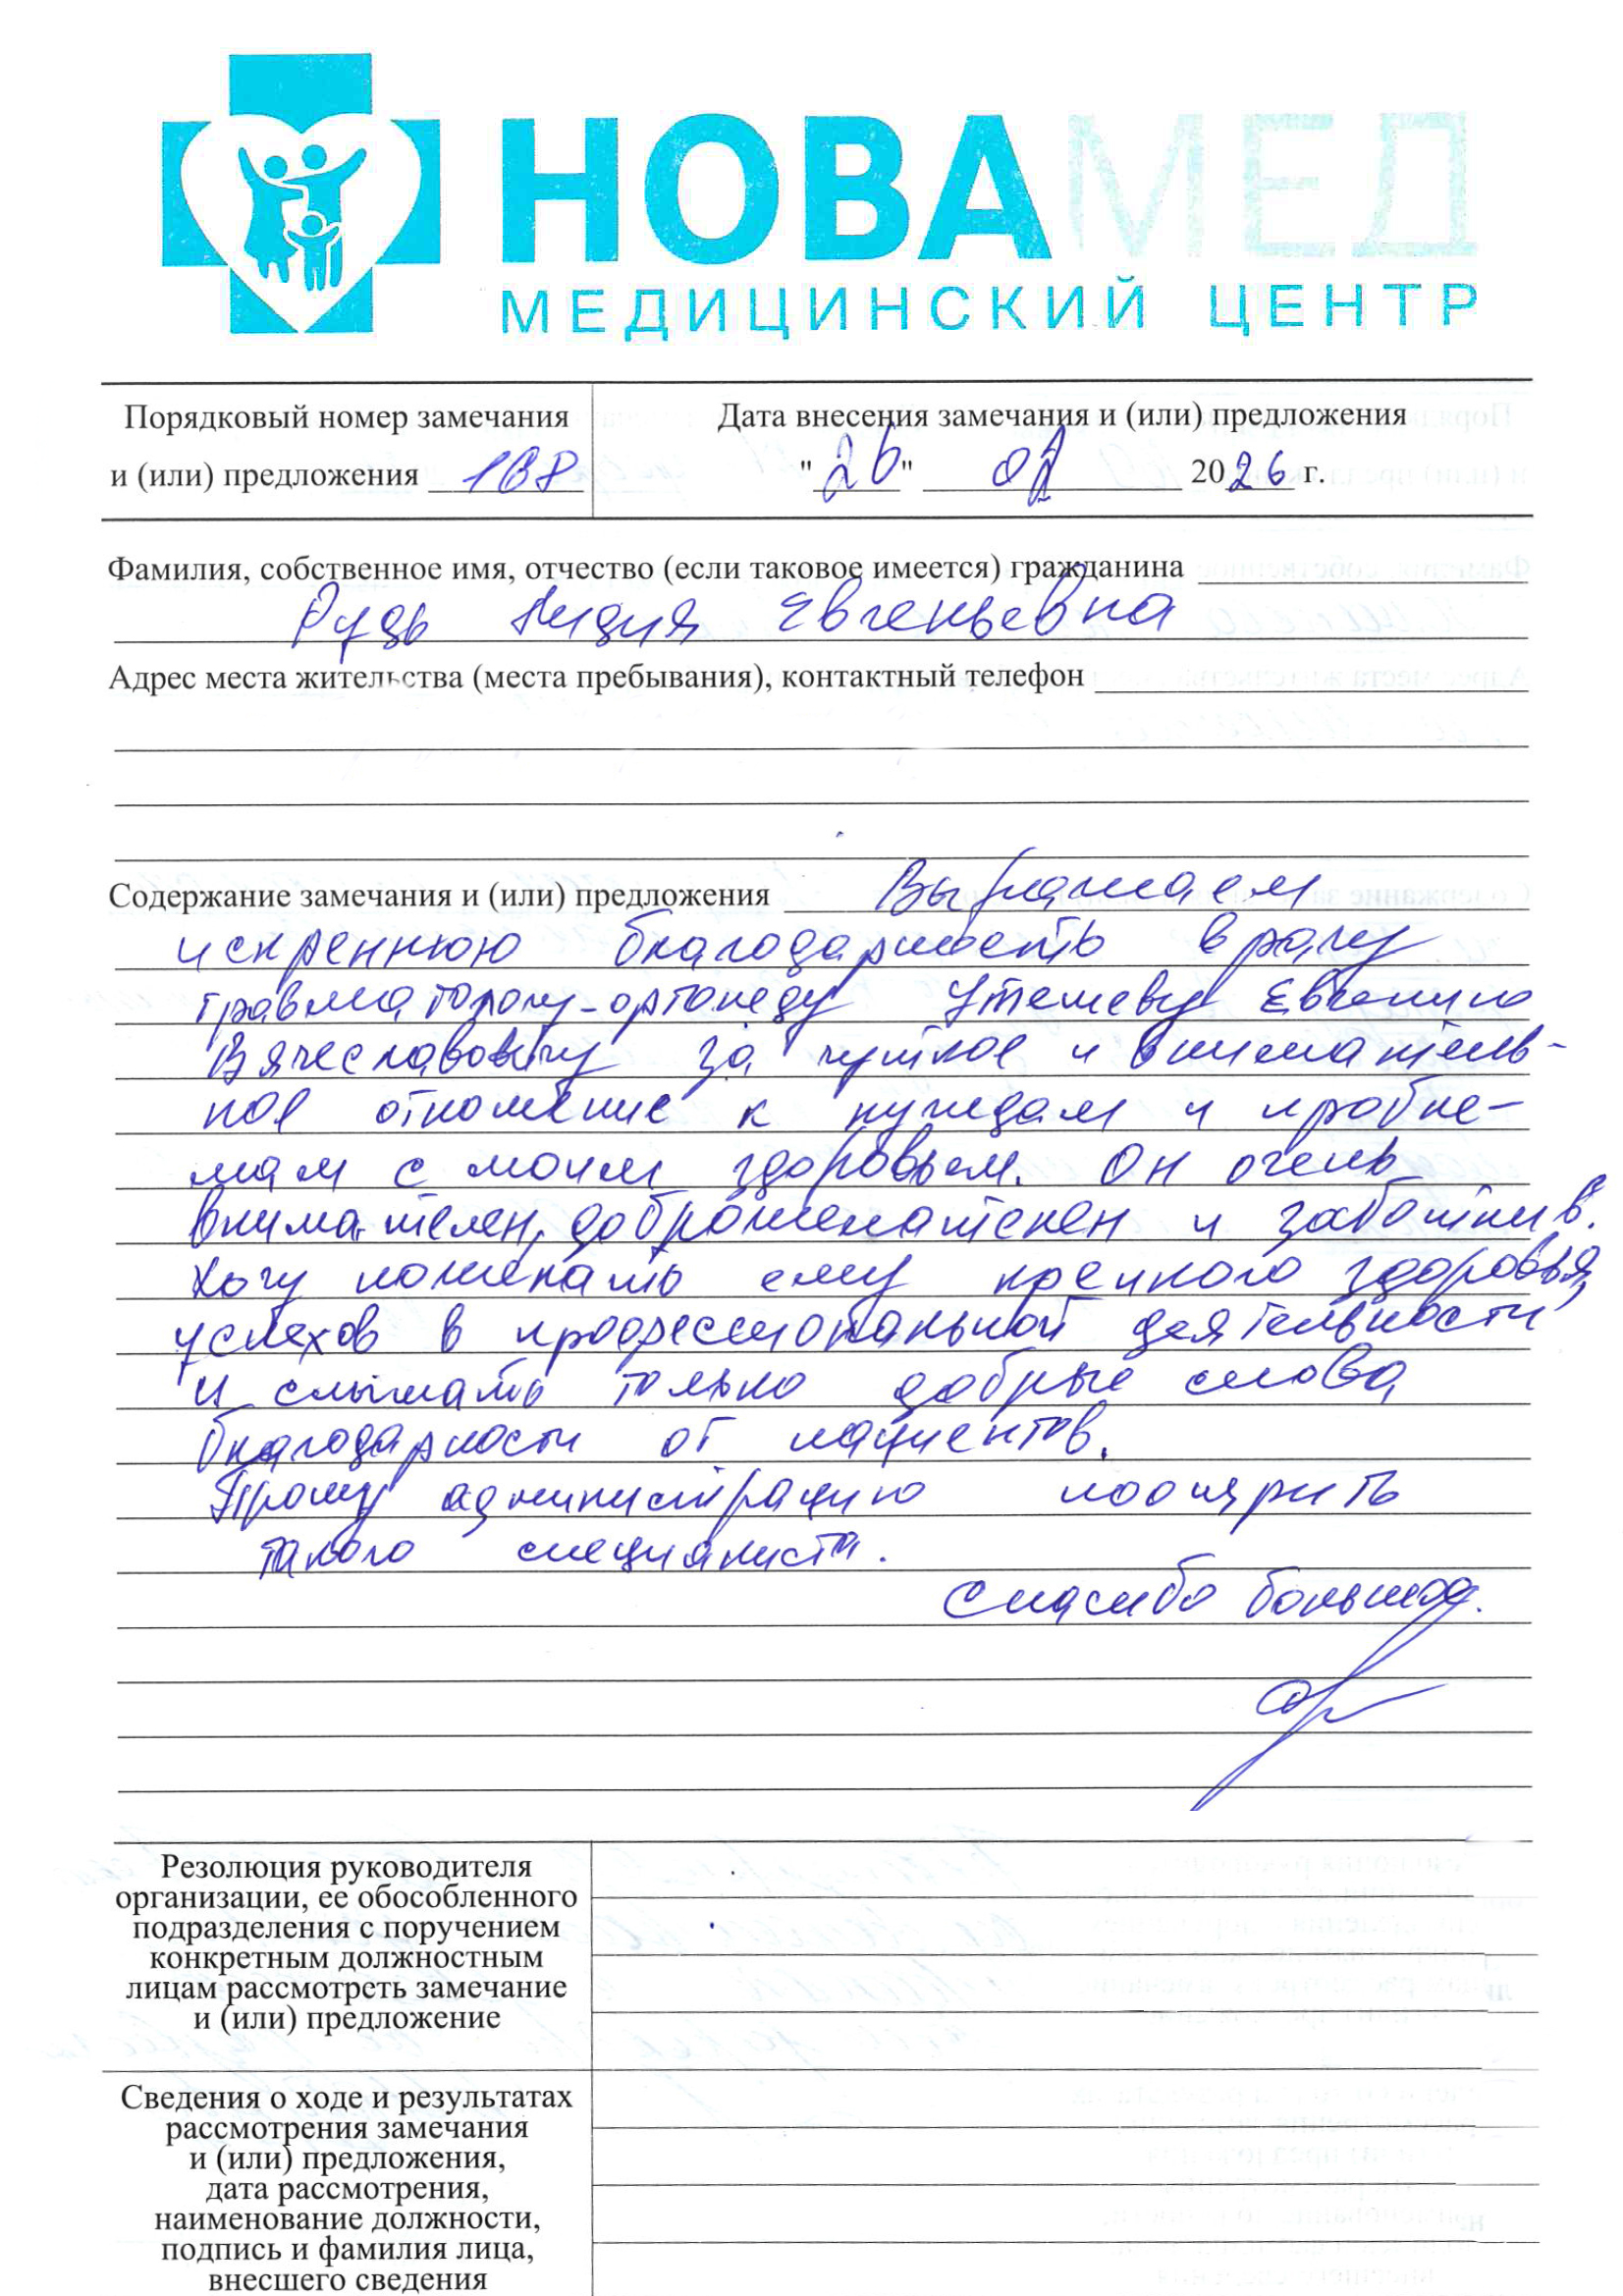 НОВАМЕД
МЕДИЦИНСКИЙ ЦЕНТР
Порядковый номер замечания
и (или) предложения 168
Дата внесения замечания и (или) предложения
"26" 02 2026 г.
Фамилия, собственное имя, отчество (если таковое имеется) гражданина
Рудь Лидия Евгеньевна
Адрес места жительства (места пребывания), контактный телефон
Содержание замечания и (или) предложения Выражаем
искреннюю благодарность врачу
травматологу-ортопеду Утешеву Евгению
Вячеславовичу за чуткое и вниматель-
ное отношение к нуждам и пробле-
мам с моим здоровьем. Он очень
внимателен, доброжелателен и заботлив.
Хочу пожелать ему крепкого здоровья,
успехов в профессиональной деятельности
и слышать только добрые слова
благодарности от пациентов.
Прошу администрацию поощрить
такого специалиста.
Спасибо большое.
Резолюция руководителя
организации, ее обособленного
подразделения с поручением
конкретным должностным
лицам рассмотреть замечание
и (или) предложение
Сведения о ходе и результатах
рассмотрения замечания
и (или) предложения,
дата рассмотрения,
наименование должности,
подпись и фамилия лица,
внесшего сведения